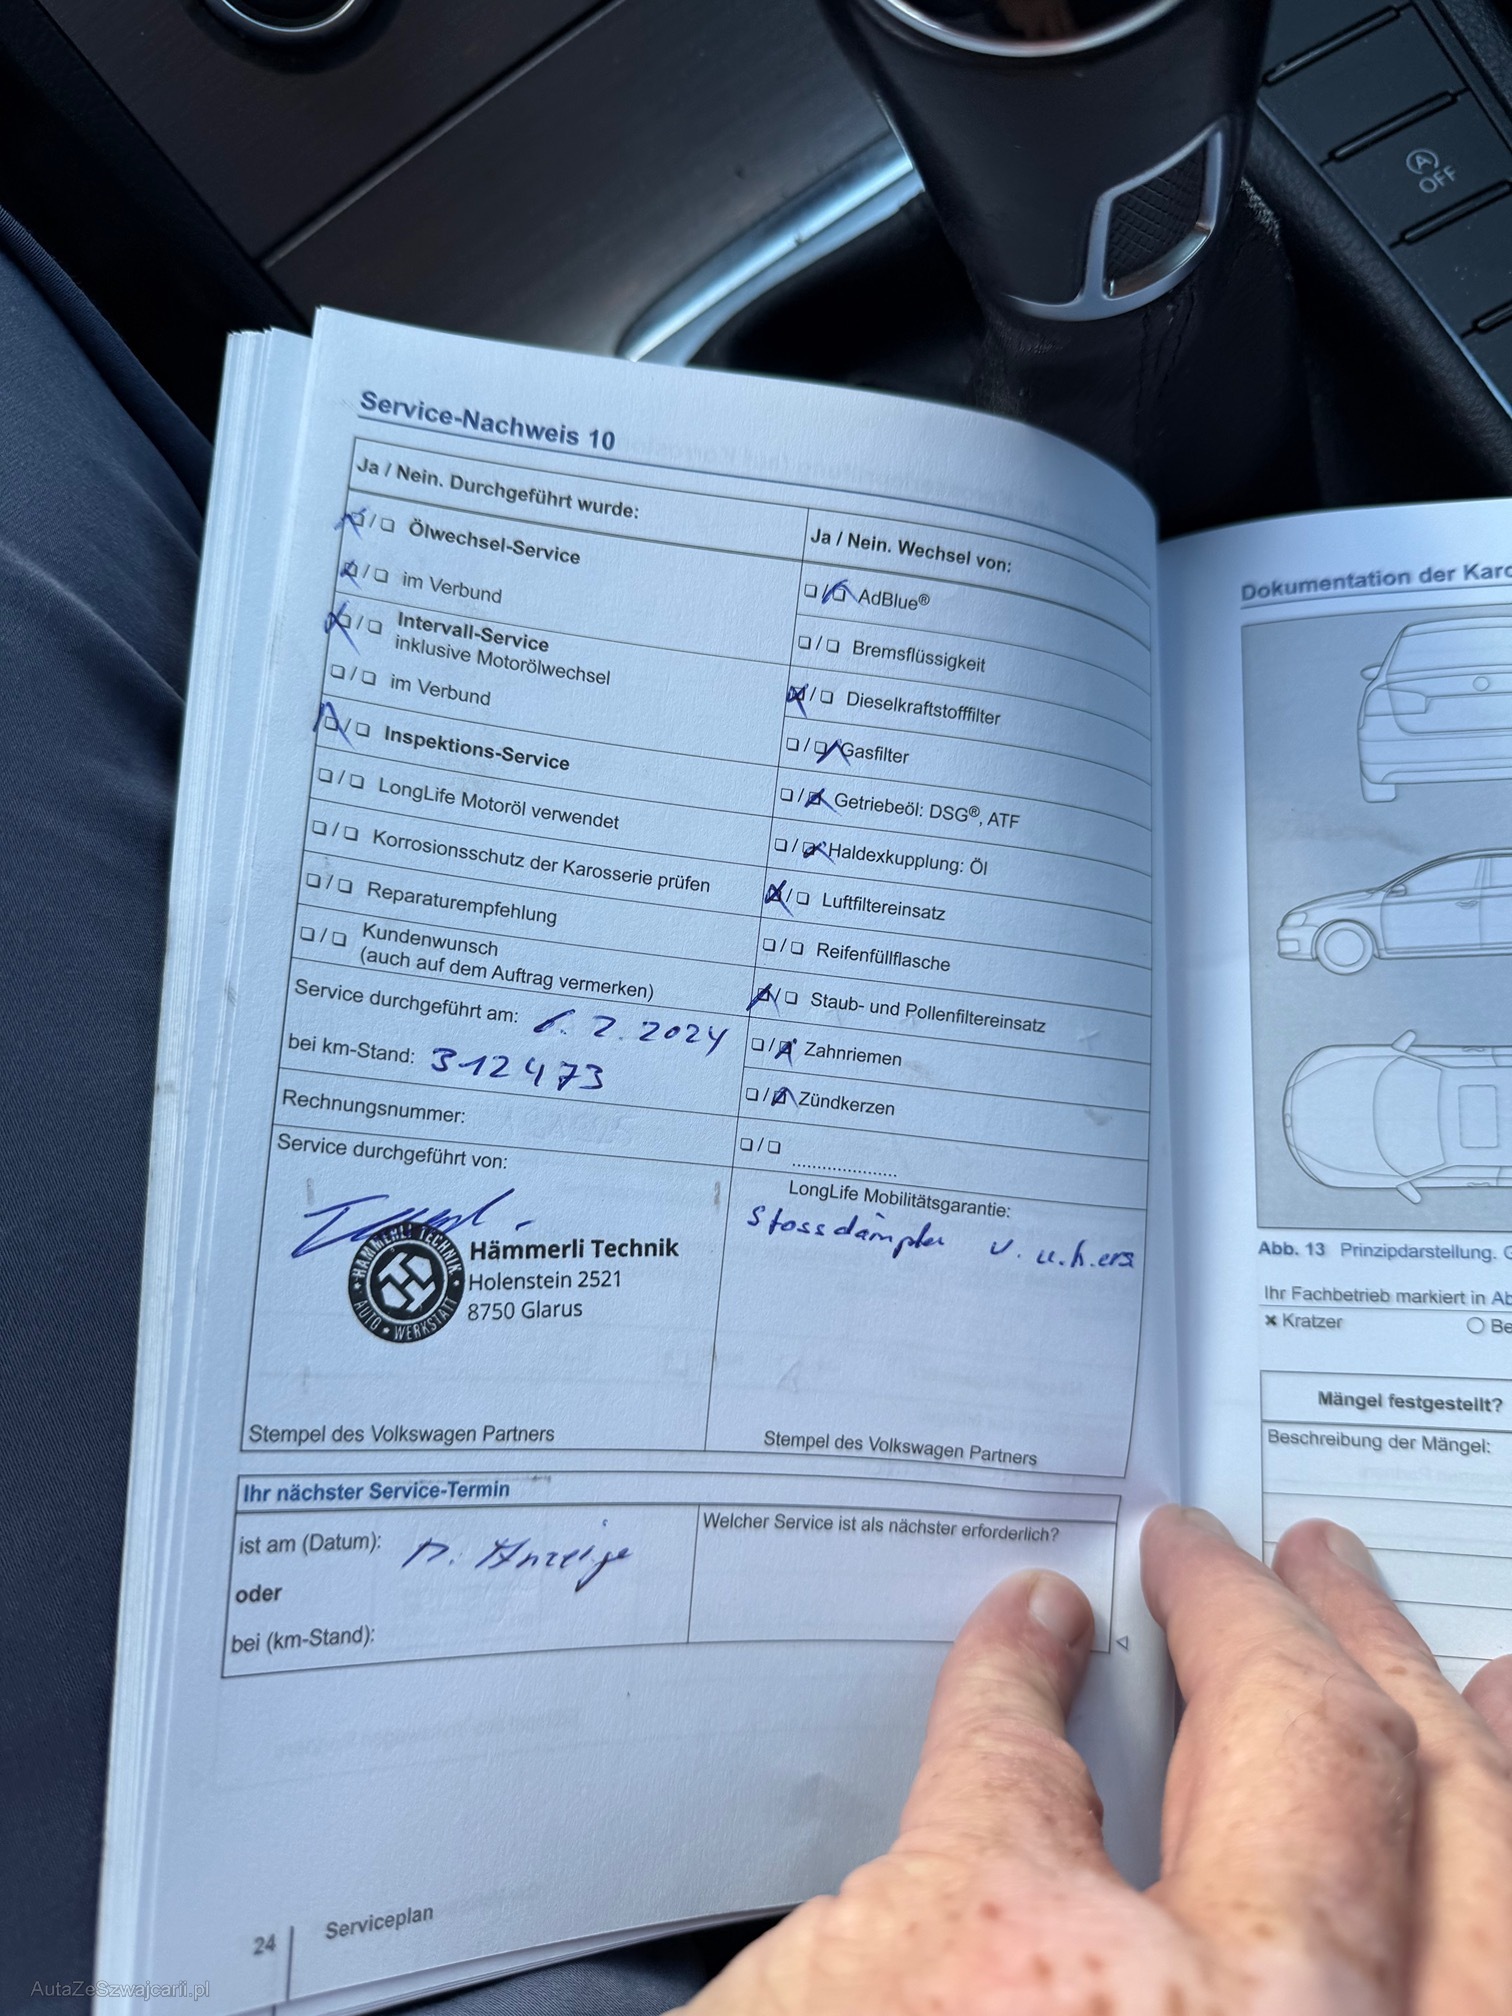 OFF
Service-Nachweis 10
Ja / Nein. Durchgeführt wurde:
Ölwechsel-Service
im Verbund
Intervall-Service
inklusive Motorölwechsel
im Verbund
Inspektions-Service
LongLife Motoröl verwendet
Korrosionsschutz der Karosserie prüfen
Reparaturempfehlung
Kundenwunsch
(auch auf dem Auftrag vermerken)
Service durchgeführt am: 6. 2. 2024
bei km-Stand: 312473
Rechnungsnummer:
Service durchgeführt von:
HÄMMERLI TECHNIK
AUTO WERKSTATT
Hämmerli Technik
Holenstein 2521
8750 Glarus
Stempel des Volkswagen Partners
Ja / Nein. Wechsel von:
AdBlue®
Bremsflüssigkeit
Dieselkraftstofffilter
Gasfilter
Getriebeöl: DSG®, ATF
Haldexkupplung: Öl
Luftfiltereinsatz
Reifenfüllflasche
Staub- und Pollenfiltereinsatz
Zahnriemen
Zündkerzen
LongLife Mobilitätsgarantie:
Stossdämpfer v. u. h. ers
Stempel des Volkswagen Partners
Ihr nächster Service-Termin
ist am (Datum): n. Anzeige
oder
bei (km-Stand):
Welcher Service ist als nächster erforderlich?
24
Serviceplan
Dokumentation der Karo
Abb. 13 Prinzipdarstellung. G
Ihr Fachbetrieb markiert in Ab
Kratzer
Be
Mängel festgestellt?
Beschreibung der Mängel:
AutaZeSzwajcarii.pl